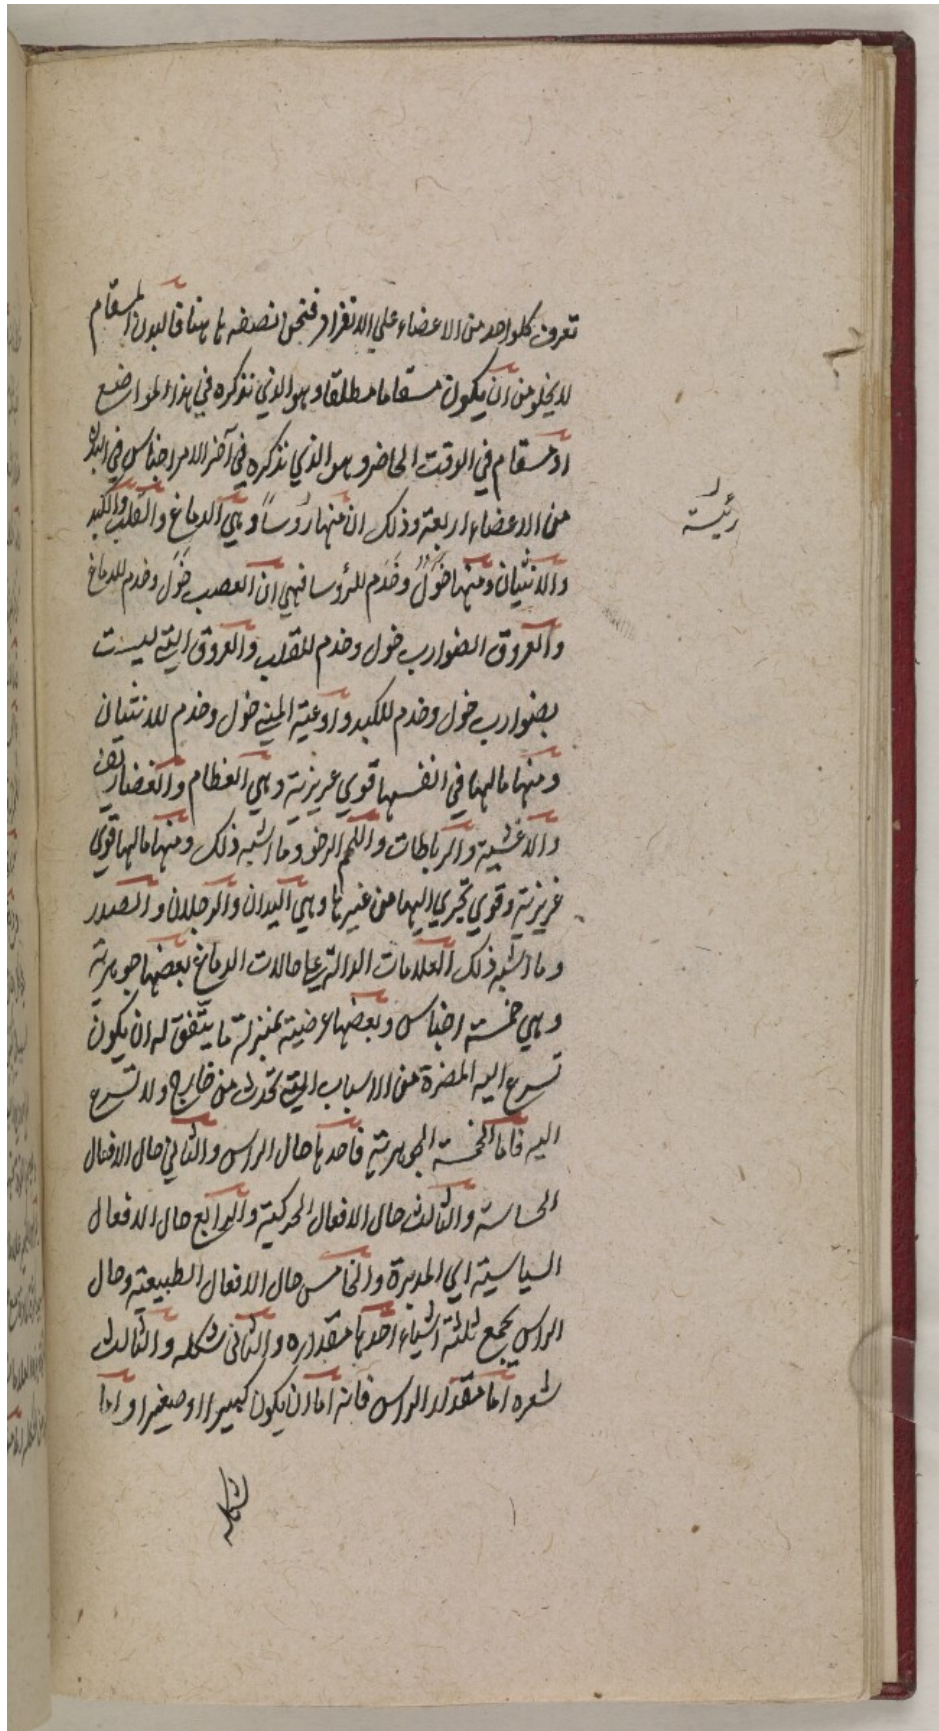 تعرف كلواحد من الاعضاء علي الانفراد فنحن نصفه ها هنا فالبدن المسقام
لا يخلو من ان يكون مسقاما مطلقا وهو الذي نذكره في هذا المواضع
او مسقام في الوقت الحاضر وهو الذي نذكره في آخر الامر اجناس في البدن
من الاعضاء اربعة وذلك ان منها رؤساً وهي الدماغ والقلب والكبد
رئيسة
والانثيان ومنها خَوَلٌ وخَدَم للرؤسا فهي ان العصب خَوَل وخدم للدماغ
والعروق الضوارب خول وخدم للقلب والعروق التي ليست
بضوارب خول وخدم للكبد واوعية المني خول وخدم للانثيان
ومنها مالها في انفسها قوي عريزية وهي العظام والغضاريف
والاغشية والرباطات واللحم الرخو وما اشبه ذلك ومنها مالها قوي
غريزية وقوي تجري اليها من غيرها وهي اليدان والرجلان والصدر
وما اشبه ذلك العلامات الدالة علي حالات الدماغ بعضها جوهرية
وهي خمسة اجناس وبعضها عرضية بمنزلة ما يتّفق له ان يكون
تسرع اليه المضرة من الاسباب التي تحدث من خارج ولا تسرع
اليه فاما الخمسة الجوهرية فاحدها حال الراس والثاني حال الافعال
الحساسة والثالث حال الافعال الحركية والرابع حال الافعال
السياسية اي المدبرة والخامس حال الافعال الطبيعية وحال
الراس يجمع ثلثة اشياء احدها مقداره والثاني شكله والثالث
شعره اما مقدار الراس فانه اما ان يكون كبيرا او صغيرا واما
شكله